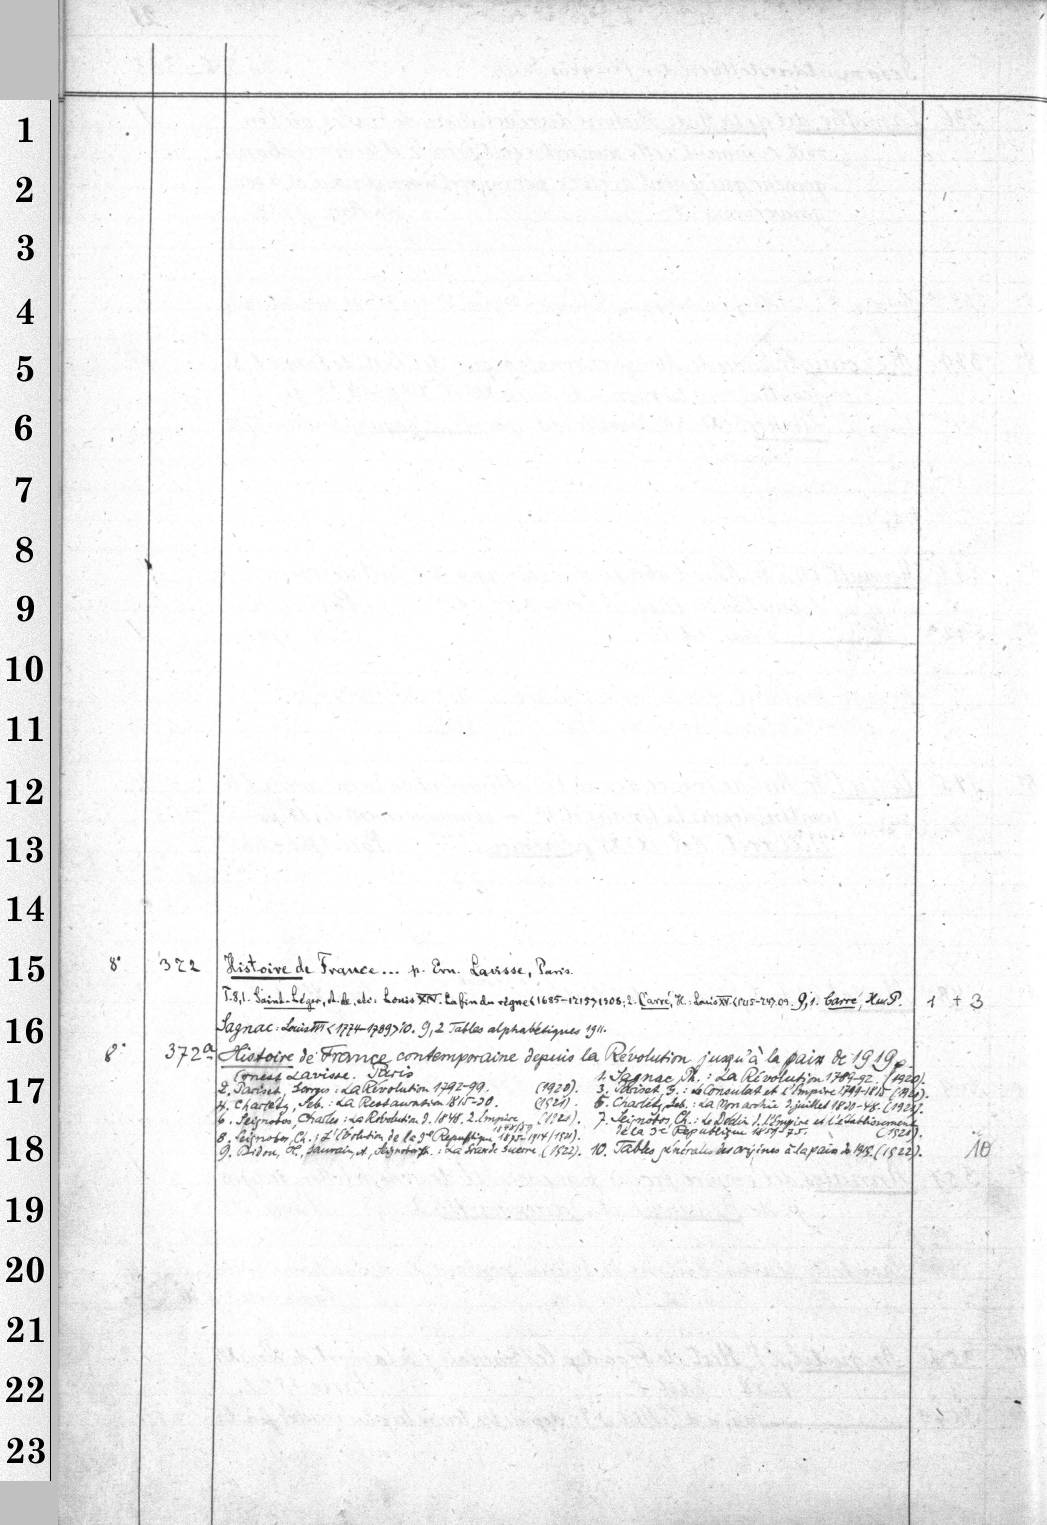 1
2
3
4
5
6
7
8
9
10
11
12
13
14
15
16
17
18
19
20
21
22
23
8° 372 Histoire de France... p. Ern. Lavisse, Paris.
T. 8,1. Saint-Léger, A. de, etc: Louis XIV. La fin du règne <1685-1715> 1908; 2. Carré, H.: Louis XV. <1715-74> 09. 9,1. Carré, H. u. P. 1 + 3
Sagnac: Louis XVI <1774-1789> 10. 9,2 Tables alphabétiques 1911.
8° 372a Histoire de France contemporaine depuis la Révolution jusqu'à la paix de 1919 p.
Ernest Lavisse. Paris 1. Sagnac, Ph.: La Révolution 1789-92. (1920).
2. Pariset, Georges: La Révolution 1792-99. (1920). 3. Pariset, G.: Le Consulat et l'Empire 1799-1815 (1921).
4. Charléty, Seb.: La Restauration 1815-30. (1921). 5. Charléty, Seb.: La Monarchie d. juillet 1830-48. (1921).
6. Seignobos, Charles: La Révolution d. 1848. 2. Empire 1848/59 (1921). 7. Seignobos, Ch.: Le Déclin d. l'Empire et l'établissement
de la 3e République 1859-75. (1921).
8. Seignobos, Ch.: L'Évolution de la 3e République 1875-1914 (1921).
9. Bidou, H., Gauvain, A., Seignobos: La Grande Guerre. (1922). 10. Tables générales des origines à la paix de 1919. (1922). 10